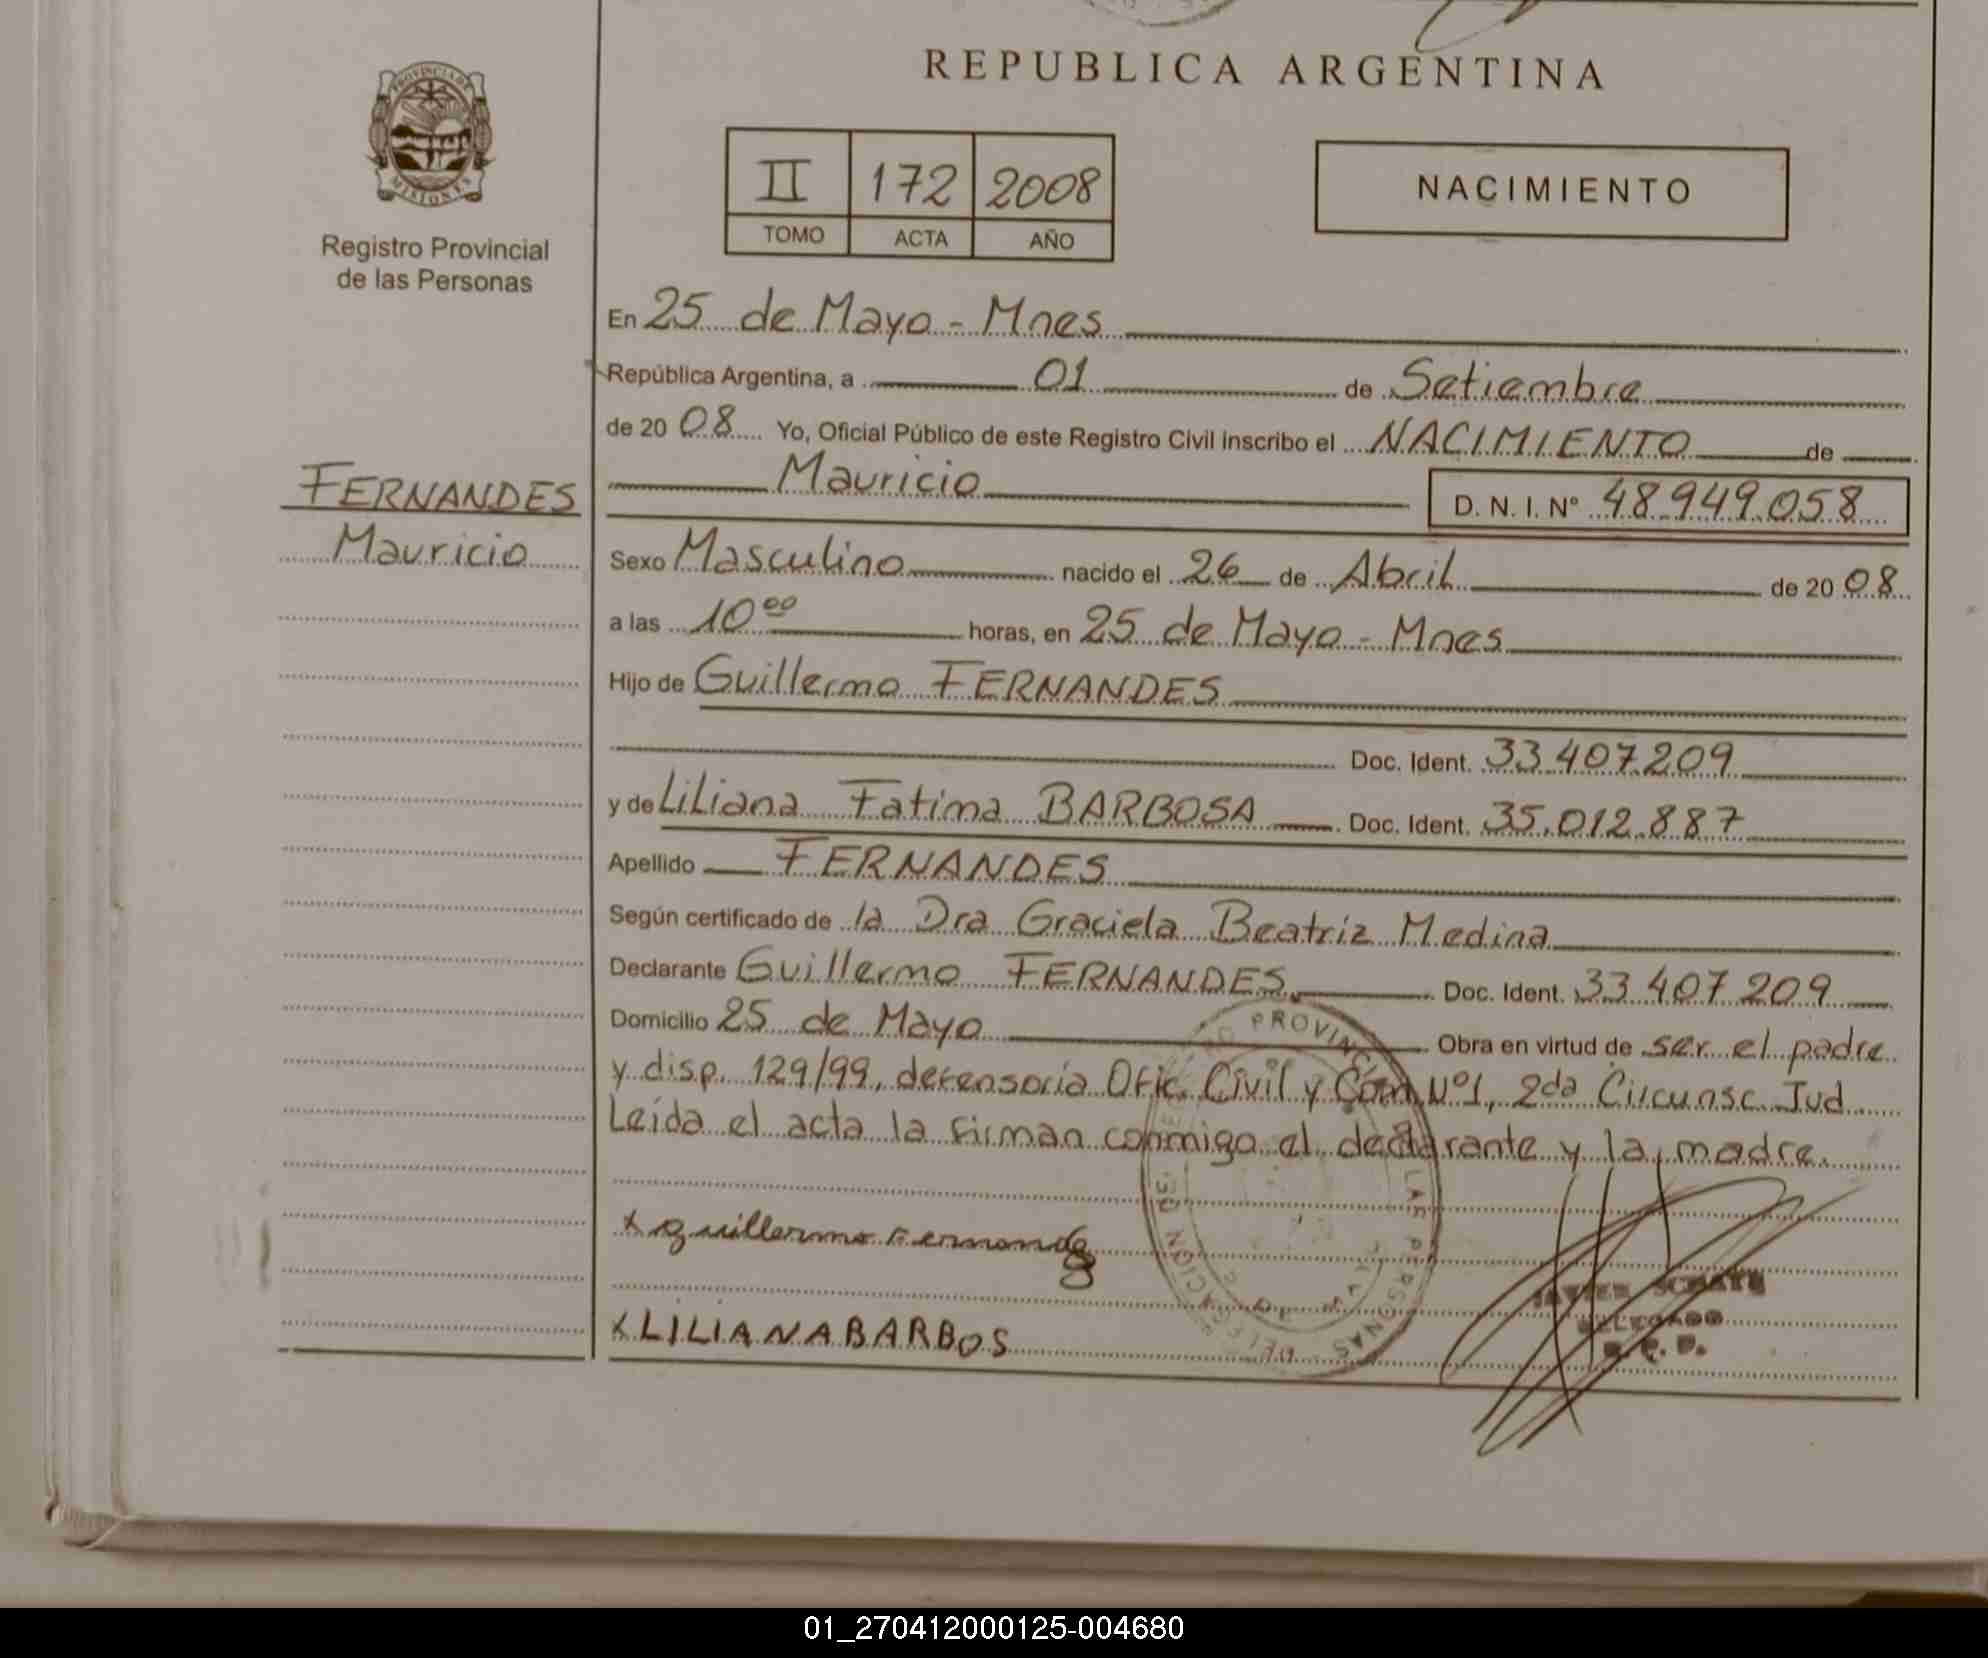 REPUBLICA ARGENTINA
PROVINCIA DE
MISIONES
Registro Provincial
de las Personas
II 172 2008
TOMO ACTA AÑO
NACIMIENTO
En 25 de Mayo - Mnes
República Argentina, a 01 de Setiembre
de 20 08 Yo, Oficial Público de este Registro Civil inscribo el NACIMIENTO de
Mauricio D. N. I. Nº 48.949.058
FERNANDES
Mauricio
Sexo Masculino nacido el 26 de Abril de 20 08
a las 10 00 horas, en 25 de Mayo - Mnes
Hijo de Guillermo FERNANDES
Doc. Ident. 33.407.209
y de Liliana Fatima BARBOSA Doc. Ident. 35.012.887
Apellido FERNANDES
Según certificado de la Dra Graciela Beatriz Medina
Declarante Guillermo FERNANDES Doc. Ident. 33.407.209
Domicilio 25 de Mayo Obra en virtud de ser el padre
y disp. 129/99, defensoria Ofic. Civil y Com Nº1, 2da Circunsc. Jud
Leída el acta la firman conmigo el declarante y la madre.
x guillermo Fernandes
x LILIANABARBOS
PROVINCIAL
LAS PERSONAS
DELEGACION
DELEGADO
R. P. P.
01_270412000125-004680